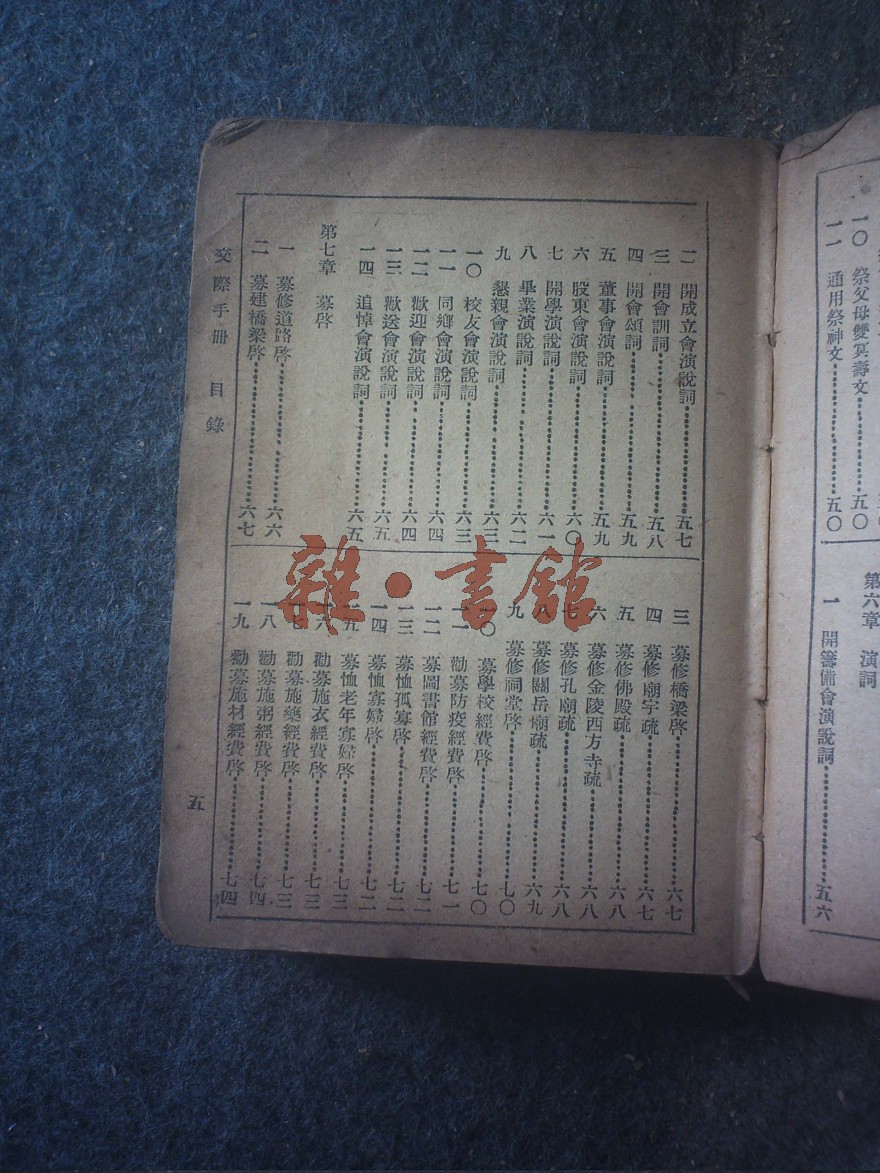 一〇　祭父母雙冥壽文…五〇
一一　通用祭神文…五〇
第六章　演詞
一　開籌備會演說詞…五六
二　開成立會演說詞…五七
三　開會訓詞…五八
四　開會頌詞…五九
五　董事會演說詞…五九
六　股東會演說詞…六〇
七　開學演說詞…六一
八　畢業演說詞…六二
九　懇親會演說詞…六三
一〇　校友會演說詞…六三
一一　同鄉會演說詞…六四
一二　歡迎會演說詞…六四
一三　歡送會演說詞…六五
一四　追悼會演說詞…六五
第七章　募啓
一　募修道路啓…六六
二　募建橋梁啓…六七
三　募修橋梁啓…六七
四　募修廟宇疏…六七
五　募修佛殿疏…六八
六　募修金陵西方寺疏…六八
七　募修孔廟疏…六八
八　募修關岳廟疏…六九
九　募修祠堂啓…七〇
一〇　募學校經費啓…七〇
一一　勸募防疫經費啓…七一
一二　募圖書館經費啓…七二
一三　募恤孤寡啓…七二
一四　募恤寡婦啓…七二
一五　募恤老年寡婦啓…七三
一六　勸募施衣經費啓…七三
一七　勸募施藥經費啓…七三
一八　勸募施粥經費啓…七四
一九　勸募施材經費啓…七四
交際手册　目錄
五
雜·書館